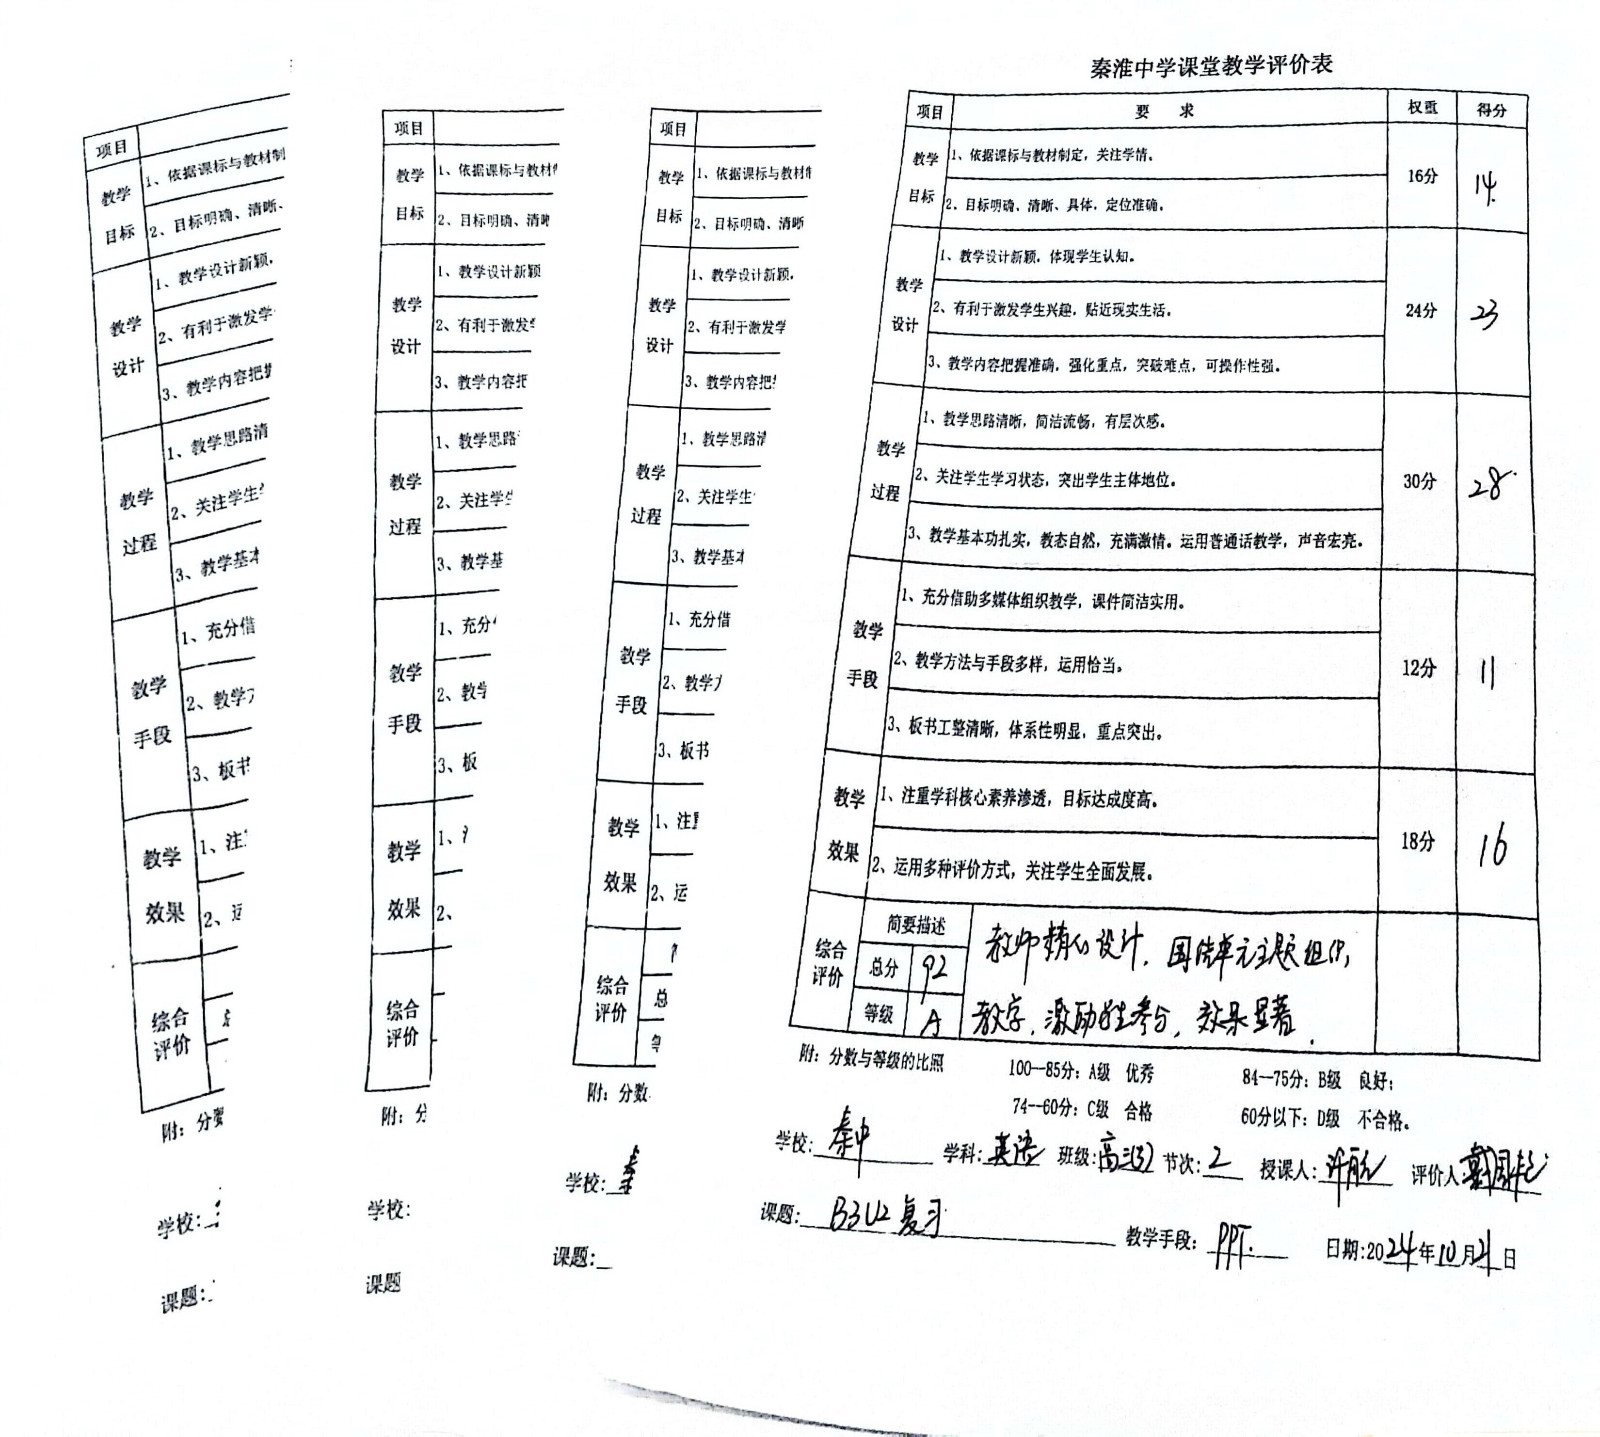 项目
教学
目标
1、依据课标与教材制
2、目标明确、清晰、
教学
设计
1、教学设计新颖，
2、有利于激发学
3、教学内容把握
教学
过程
1、教学思路清
2、关注学生
3、教学基本
教学
手段
1、充分借
2、教学方
3、板书
教学
效果
1、注
2、运
综合
评价
附：分数
学校：
课题：
项目
教学
目标
1、依据课标与教材
2、目标明确、清晰
教学
设计
1、教学设计新颖
2、有利于激发
3、教学内容把
教学
过程
1、教学思路
2、关注学生
3、教学基
教学
手段
1、充分
2、教学
3、板
教学
效果
1、
2、
综合
评价
附：分
学校：
课题
项目
教学
目标
1、依据课标与教材制
2、目标明确、清晰
教学
设计
1、教学设计新颖，
2、有利于激发学
3、教学内容把
教学
过程
1、教学思路清
2、关注学生
3、教学基本
教学
手段
1、充分借
2、教学方
3、板书
教学
效果
1、注重
2、运
综合
评价
总
附：分数
学校：秦
课题：
秦淮中学课堂教学评价表
项目 要 求 权重 得分
教学 目标 16分 14
1、依据课标与教材制定，关注学情。
2、目标明确、清晰、具体，定位准确。
教学 设计 24分 23
1、教学设计新颖，体现学生认知。
2、有利于激发学生兴趣，贴近现实生活。
3、教学内容把握准确，强化重点，突破难点，可操作性强。
教学 过程 30分 28
1、教学思路清晰，简洁流畅，有层次感。
2、关注学生学习状态，突出学生主体地位。
3、教学基本功扎实，教态自然，充满激情。运用普通话教学，声音宏亮。
教学 手段 12分 11
1、充分借助多媒体组织教学，课件简洁实用。
2、教学方法与手段多样，运用恰当。
3、板书工整清晰，体系性明显，重点突出。
教学 效果 18分 16
1、注重学科核心素养渗透，目标达成度高。
2、运用多种评价方式，关注学生全面发展。
综合 评价
简要描述
总分 92
等级 A
教师精心设计，围绕单元主题组织
教学，激励学生参与，效果显著．
附：分数与等级的比照 100--85分：A级 优秀 84--75分：B级 良好；
74--60分：C级 合格 60分以下：D级 不合格。
学校：秦中 学科：英语 班级：高三(3) 节次：2 授课人：许 评价人：戴国
课题：B3U2复习 教学手段：PPT. 日期：2024年10月21日